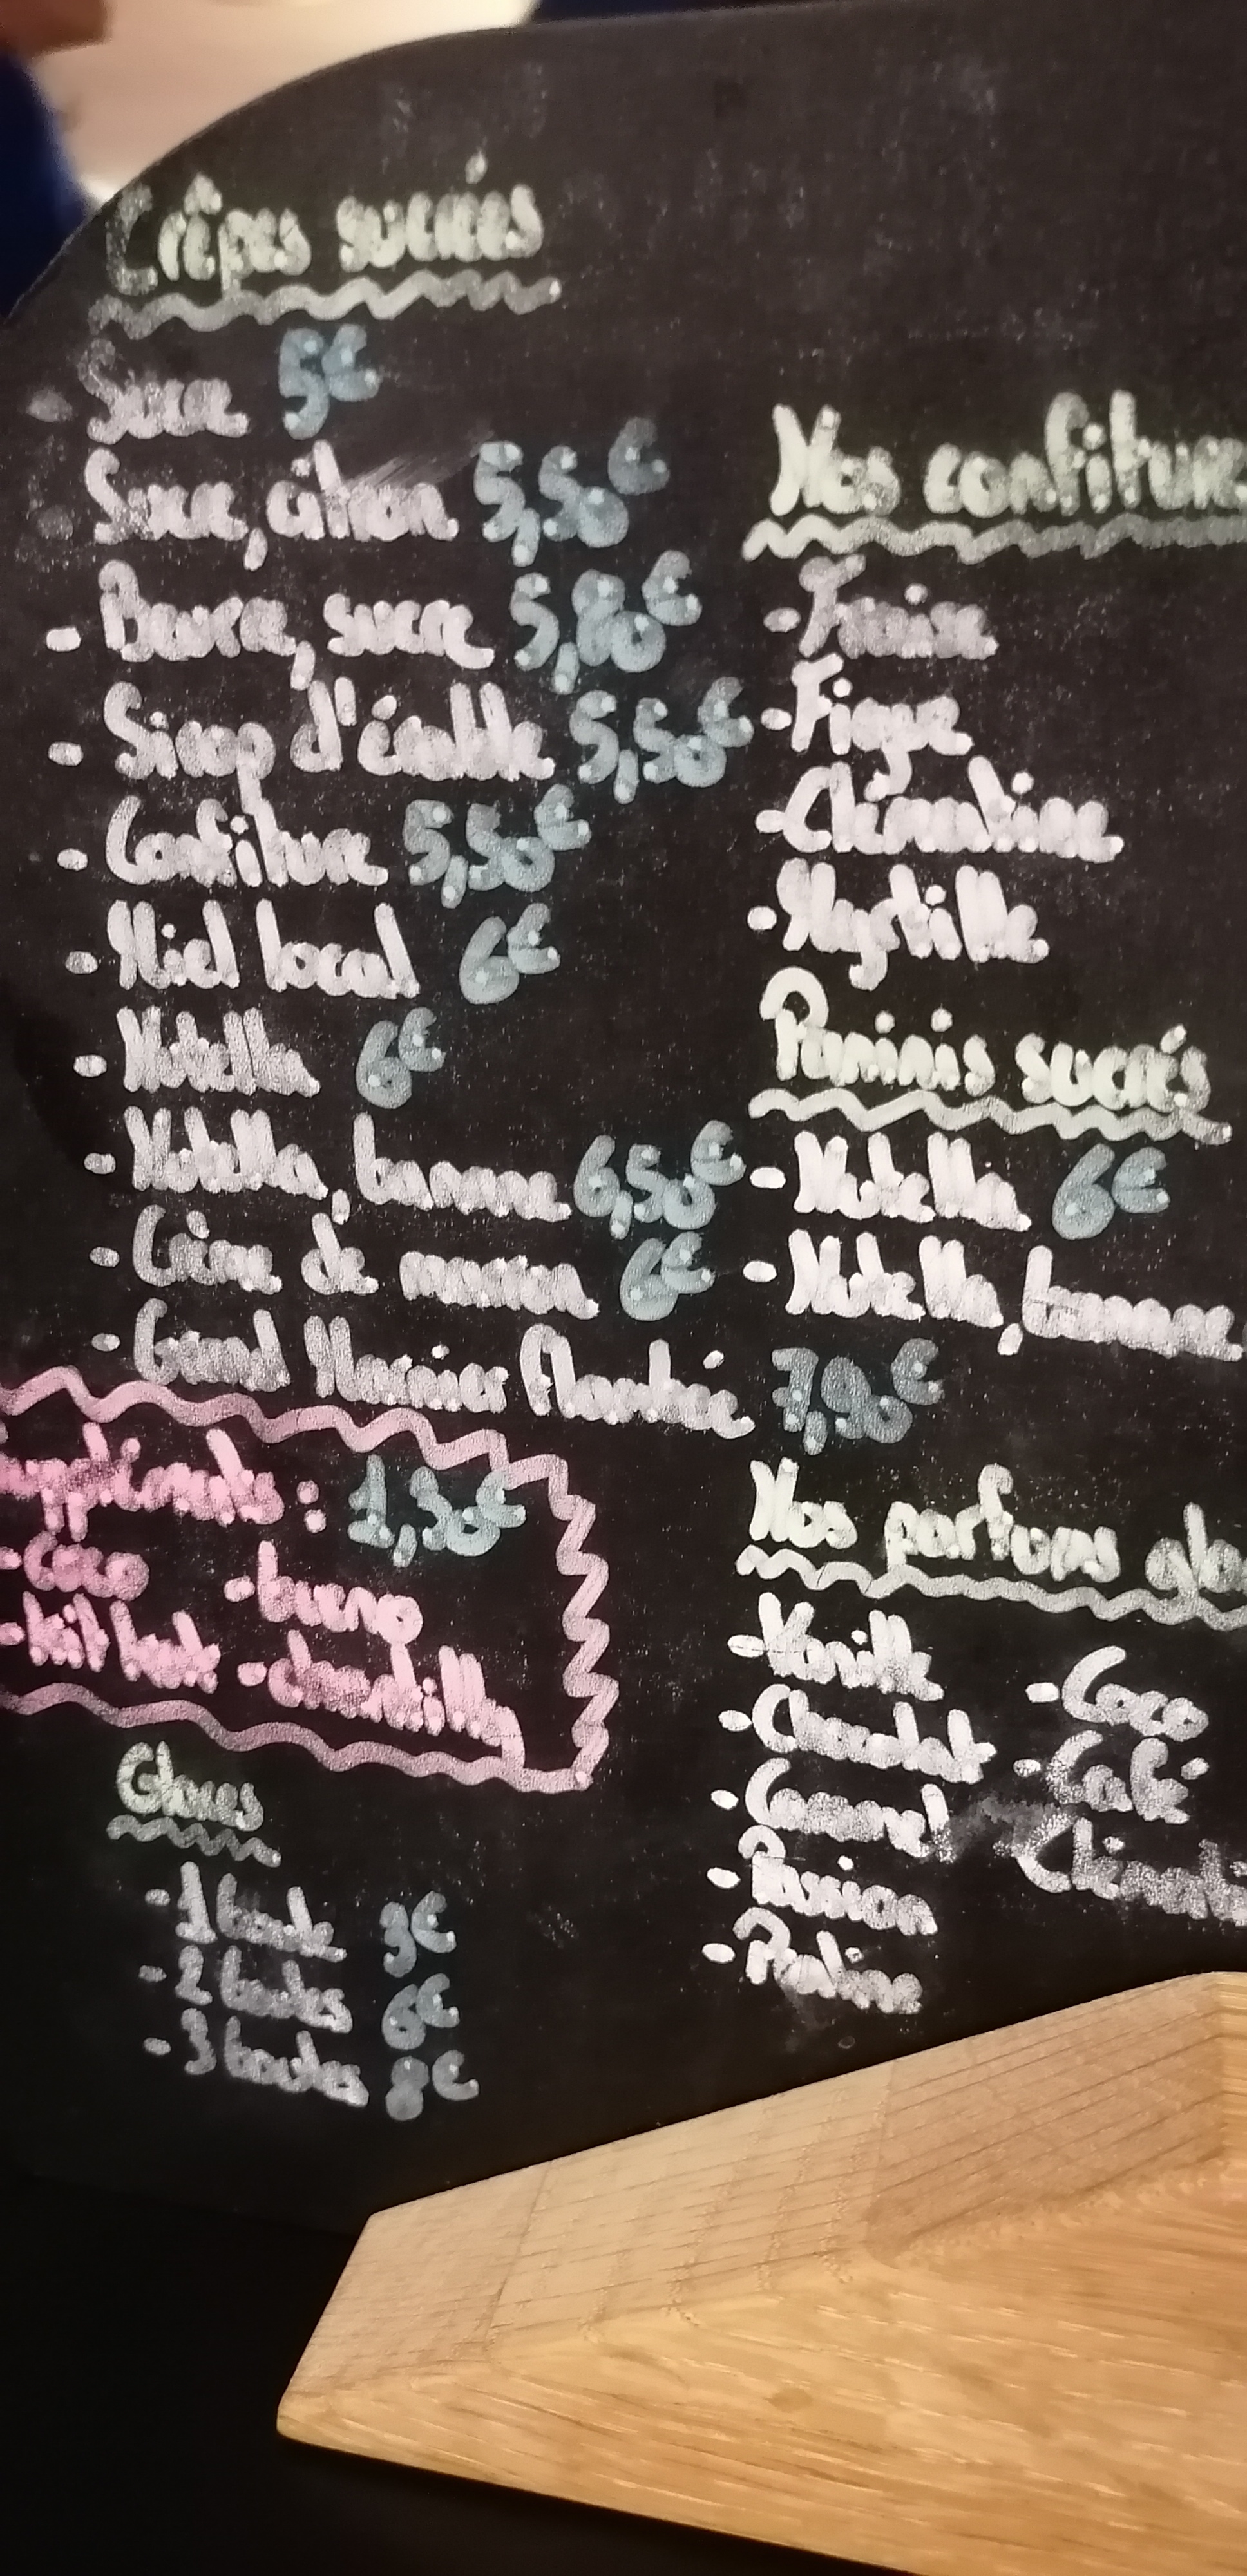 Crêpes sucrées
Sucre 5€
Sucre, citron 5,50€
- Beurre, sucre 5,80€
- Sirop d'érable 5,50€
- Confiture 5,50€
- Miel local 6€
- Nutella 6€
- Nutella, banane 6,50€
- Crème de marron 6€
- Grand Marnier Flambé 7,90€
Suppléments : 1,30€
- coco - bueno
- kit kat - chantilly
Glaces
- 1 boule 3€
- 2 boules 6€
- 3 boules 8€
Nos confiture
- Fraise
- Figue
- Clémentine
- Myrtille
Paninis sucrés
- Nutella 6€
- Nutella, banane
Nos parfums gla
- Vanille
- Chocolat
- Caramel
- Passion
- Praline
- Coco
- Café
Clémenti